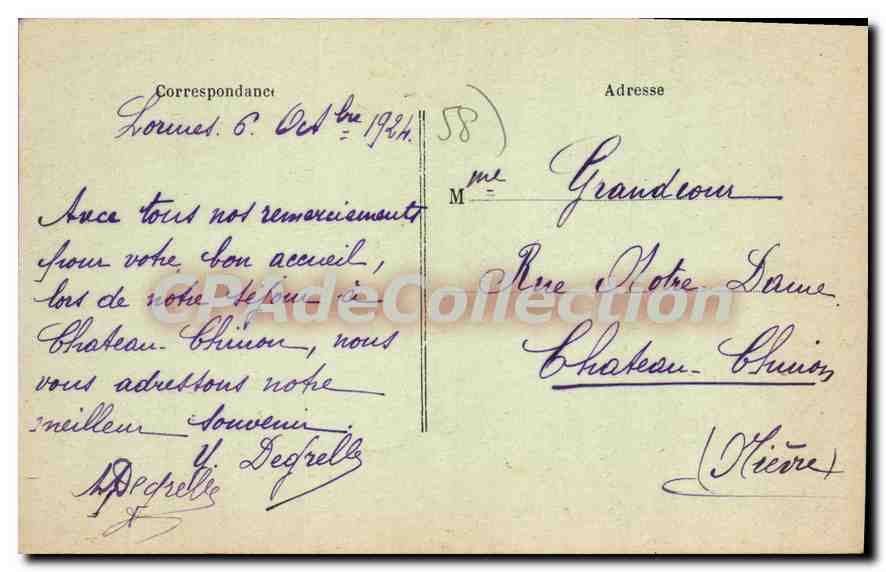 Correspondance
Lormes. 6. Octbre 1924.
Avec tous nos remerciements
pour votre bon accueil,
lors de notre séjour à
Chateau-Chinon, nous
vous adressons notre
meilleur souvenir.
Y Degrelle
Degrelle
58
Adresse
Mme Grandcour
Rue Notre Dame
Chateau-Chinon
(Nièvre)
CPAdeCollection